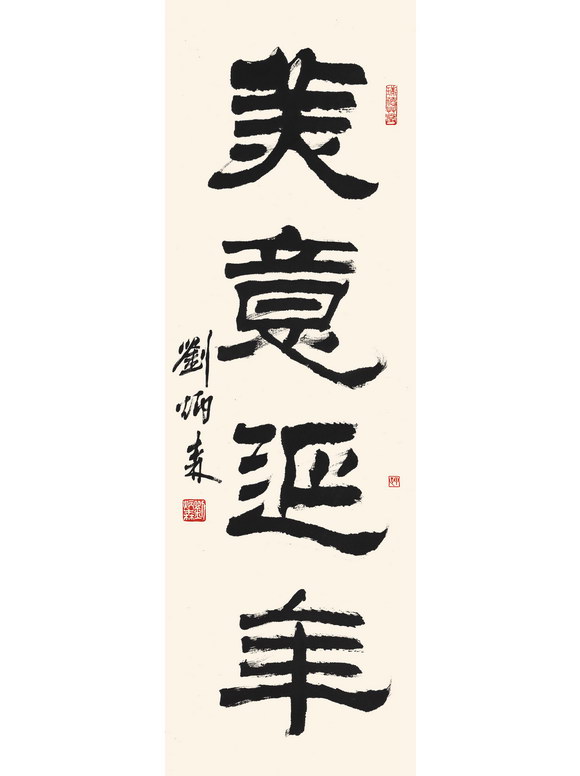 美意延年
劉炳森